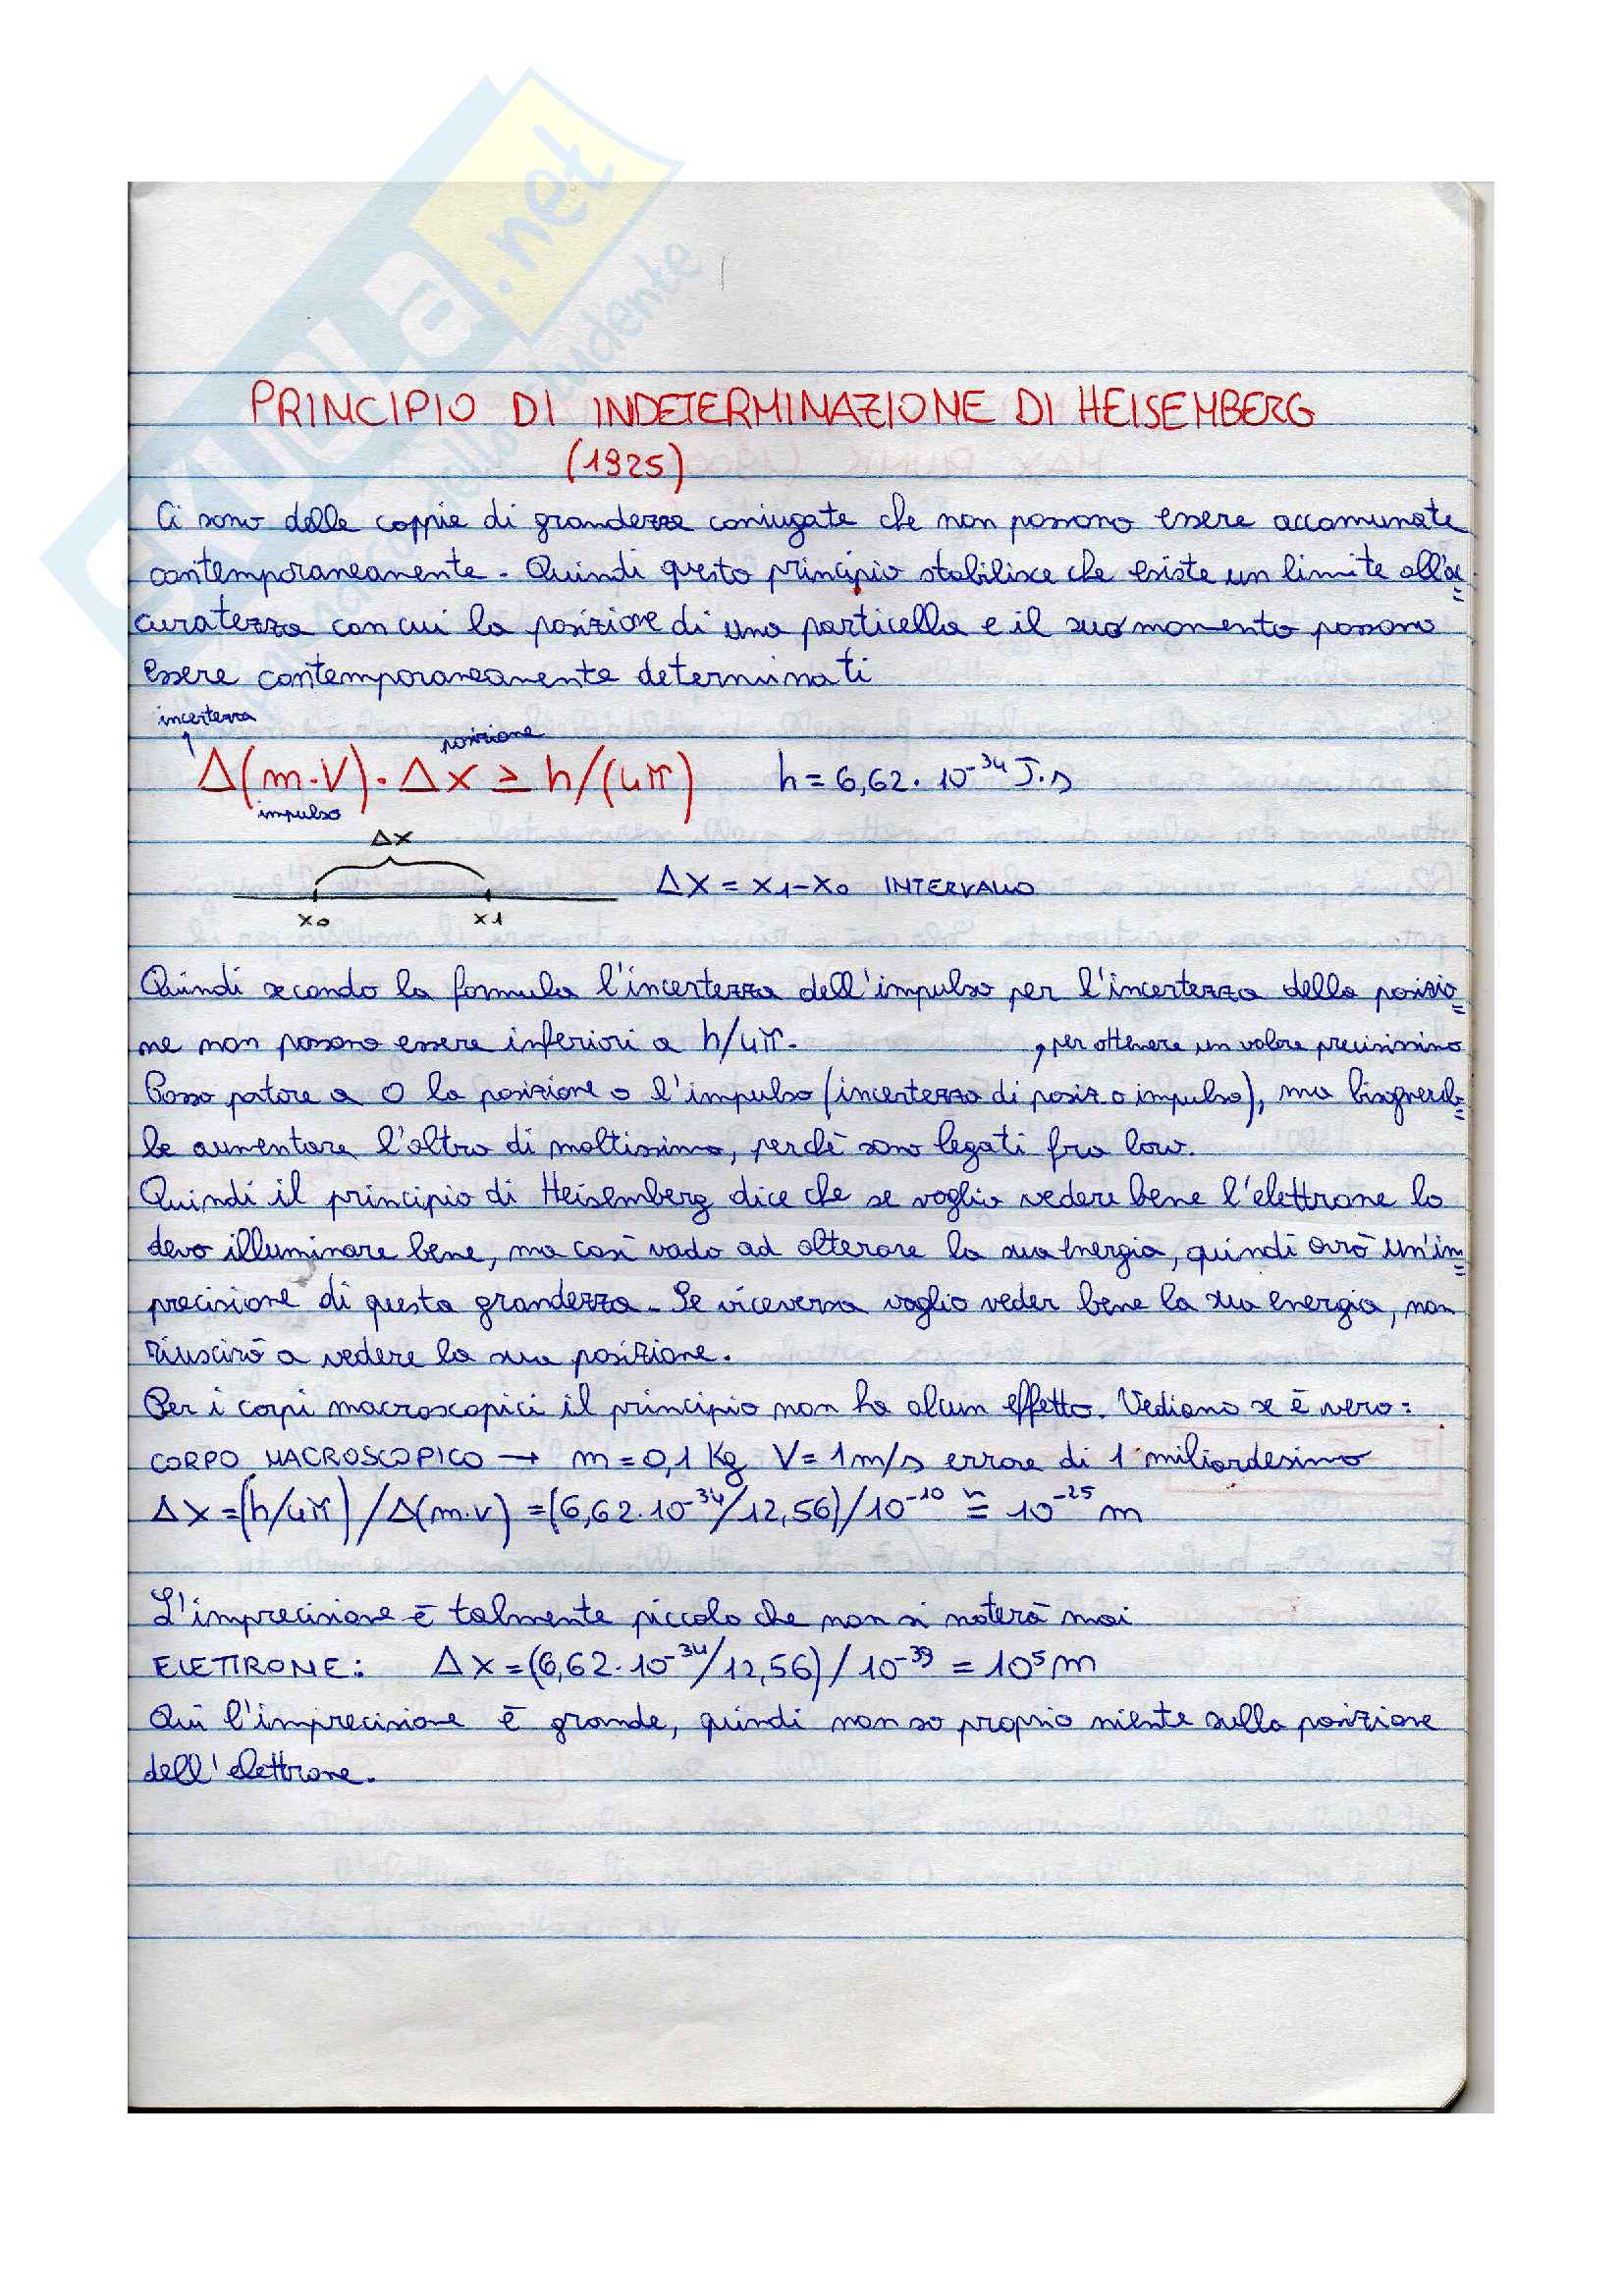 SKUOLA.net
PRINCIPIO DI INDETERMINAZIONE DI HEISEMBERG
(1925)
Ci sono delle coppie di grandezze coniugate che non possono essere accomunate
contemporaneamente. Quindi questo principio stabilisce che esiste un limite all'ac=
curatezza con cui la posizione di una particella e il suo momento possono
essere contemporaneamente determinati
incertezza
posizione
Δ(m·V)·Δx ≥ h/(4π) h = 6,62·10⁻³⁴ J·s
impulso
Δx
Δx = x1-x0 INTERVALLO
x0 x1
Quindi secondo la formula l'incertezza dell'impulso per l'incertezza della posizio=
ne non possono essere inferiori a h/4π.
per ottenere un valore precisissimo
Posso portare a 0 la posizione o l'impulso (incertezza di posiz o impulso), ma bisognereb=
be aumentare l'altro di moltissimo, perchè sono legati fra loro.
Quindi il principio di Heisemberg dice che se voglio vedere bene l'elettrone lo
devo illuminare bene, ma così vado ad alterare la sua energia, quindi avrò un'im=
precisione di questa grandezza. Se viceversa voglio veder bene la sua energia, non
riuscirò a vedere la sua posizione.
Per i corpi macroscopici il principio non ha alcun effetto. Vediamo se è vero:
CORPO MACROSCOPICO → m = 0,1 Kg V = 1 m/s errore di 1 miliardesimo
Δx = (h/4π) / Δ(m·v) = (6,62·10⁻³⁴/12,56)/10⁻¹⁰ ≅ 10⁻²⁵ m
L'imprecisione è talmente piccola che non si noterà mai
ELETTRONE: Δx = (6,62·10⁻³⁴/12,56) / 10⁻³⁹ = 10⁵ m
Qui l'imprecisione è grande, quindi non so proprio niente sulla posizione
dell'elettrone.